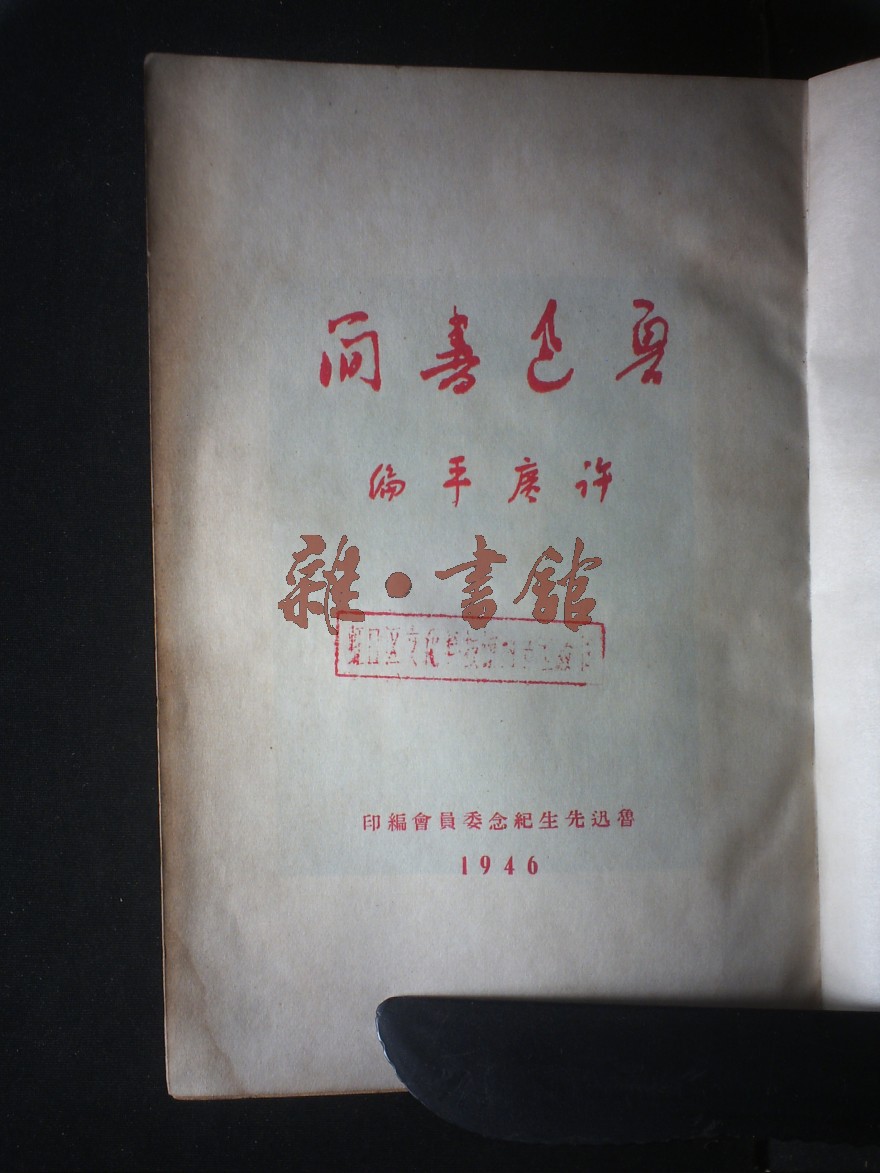 魯迅書簡
許广平編
雜·書館
魯迅先生紀念委員會編印
1946